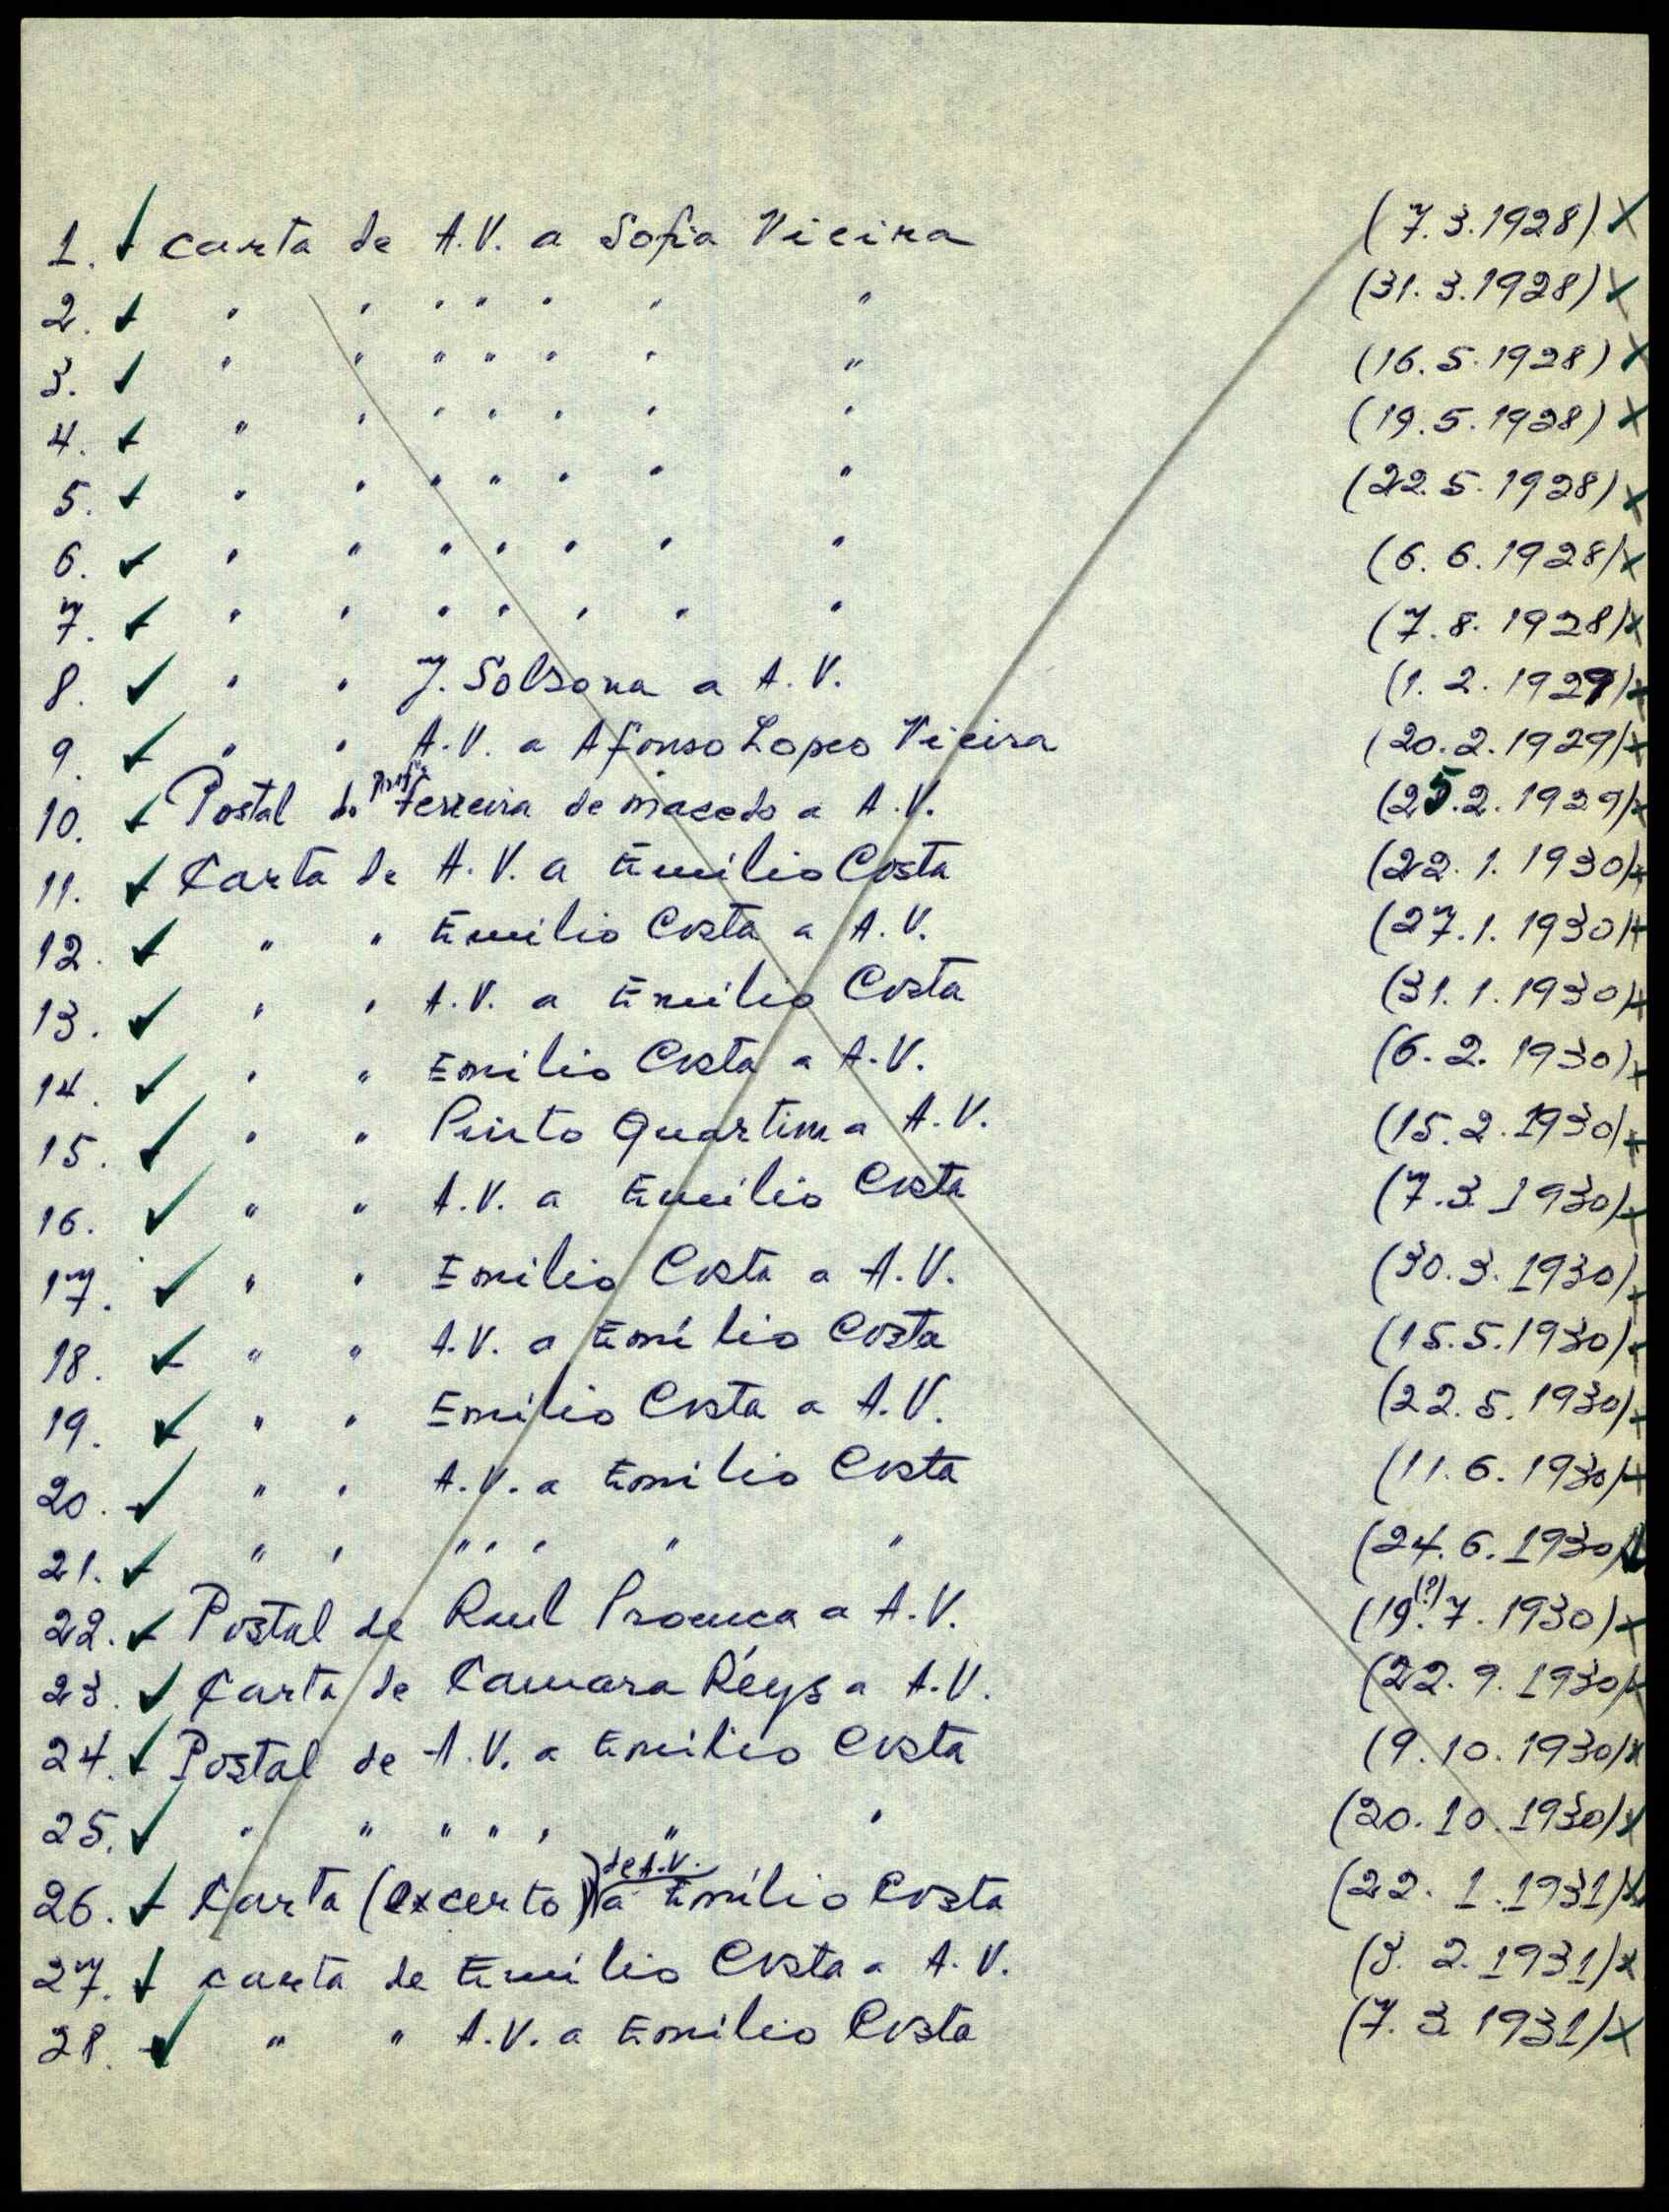 1. ✓ Carta de A.V. a Sofia Vieira (7.3.1928) X
2. ✓ " " " " " " " (31.3.1928) X
3. ✓ " " " " " " " (16.5.1928) X
4. ✓ " " " " " " " (19.5.1928) X
5. ✓ " " " " " " " (22.5.1928) X
6. ✓ " " " " " " " (6.6.1928) X
7. ✓ " " " " " " " (7.8.1928) X
8. ✓ " " J. Solsona a A.V. (1.2.1929) X
9. ✓ " " A.V. a Afonso Lopes Vieira (20.2.1929) X
10. ✓ Postal do Prof. Ferreira de Macedo a A.V. (25.2.1929) X
11. ✓ Carta de A.V. a Emílio Costa (22.1.1930) X
12. ✓ " " Emílio Costa a A.V. (27.1.1930) X
13. ✓ " " A.V. a Emílio Costa (31.1.1930) X
14. ✓ " " Emílio Costa a A.V. (6.2.1930) X
15. ✓ " " Pinto Quartim a A.V. (15.2.1930) X
16. ✓ " " A.V. a Emílio Costa (7.3.1930) X
17. ✓ " " Emílio Costa a A.V. (30.3.1930) X
18. ✓ " " A.V. a Emílio Costa (15.5.1930) X
19. ✓ " " Emílio Costa a A.V. (22.5.1930) X
20. ✓ " " A.V. a Emílio Costa (11.6.1930) X
21. ✓ " " " " " " " (24.6.1930) X
22. ✓ Postal de Raul Proença a A.V. (19(?).7.1930) X
23. ✓ Carta de Camara Reys a A.V. (22.9.1930) X
24. ✓ Postal de A.V. a Emílio Costa (9.10.1930) X
25. ✓ " " " " " " " (20.10.1930) X
26. ✓ Carta (excerto) de A.V. a Emílio Costa (22.1.1931) X
27. ✓ Carta de Emílio Costa a A.V. (3.2.1931) X
28. ✓ " " A.V. a Emílio Costa (7.3.1931) X